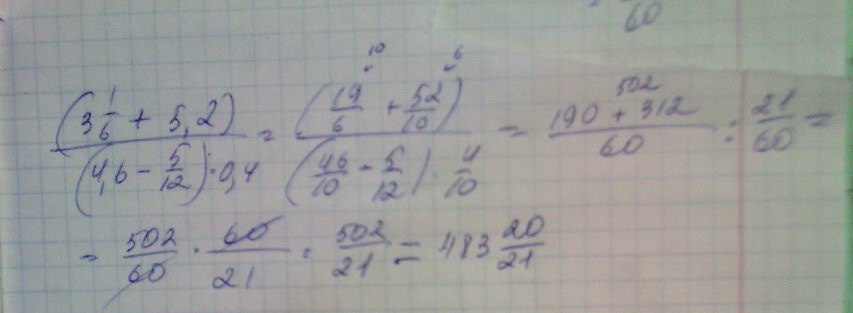 60
(3 1/6 + 5,2) / ((4,6 - 5/12) · 0,4) = (19/6 + 52/10) / ((46/10 - 5/12) · 4/10) = (190 + 312)/60 : 21/60 =
10 6 502
= 502/60 · 60/21 : 502/21 = 483 20/21